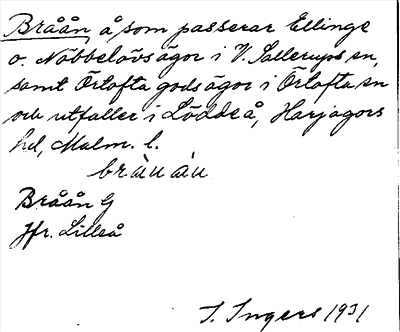 Bråån å som passerar Ellinge
o. Nöbbelövs ägor i V. Sallerups sn,
samt Örtofta gods ägor i Örtofta sn
och utfaller i Löddeå, Harjagers
hd, Malm. l.
Bråån G
Jfr. Lilleå
I. Ingers 1931